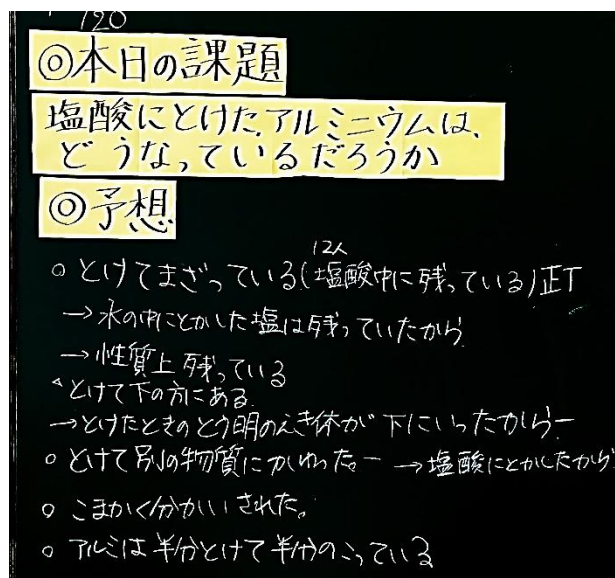 120
◎本日の課題
塩酸にとけたアルミニウムは、
どうなっているだろうか
◎予想
12人
○とけてまざっている(塩酸中に残っている)正T
→水の中にとかした塩は残っていたから
→性質上残っている
とけて下の方にある
→とけたときのとう明のえき体が下にいったから一
○とけて別の物質にかわった。一 →塩酸にとかしたから
○こまかく分かいされた。
○アルミは半分とけて半分のこっている